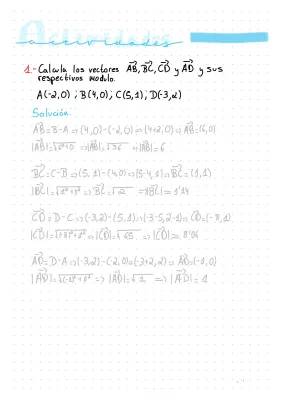 Actividades
actividades
1- Calcula los vectores AB, BC, CD y AD y sus
respectivos modulo.
A(-2,0) ; B(4,0) ; C(5,1) ; D(-3,2)
Solución:
AB = B-A ⇒ (4,0)-(-2,0) ⇒ (4+2,0) ⇒ AB=(6,0)
|AB|=√6²+0² ⇒ |AB|=√36 ⇒ |AB|=6
BC = C-B ⇒ (5,1)-(4,0) ⇒ (5-4,1) ⇒ BC=(1,1)
|BC|=√1²+1² ⇒ BC=√2 ⇒ |BC|=1'14
CD = D-C ⇒ (-3,2)-(5,1) ⇒ (-3-5,2-1) ⇒ CD=(-8,1)
|CD|=√-8²+1² ⇒ |CD|=√65 ⇒ |CD|= 8'06
AD = D-A ⇒ (-3,2)-(-2,0) = (-3+2,2) ⇒ AD=(-1,0)
|AD|=√(-1)²+0² ⇒ |AD|=√1 ⇒ |AD|= 1